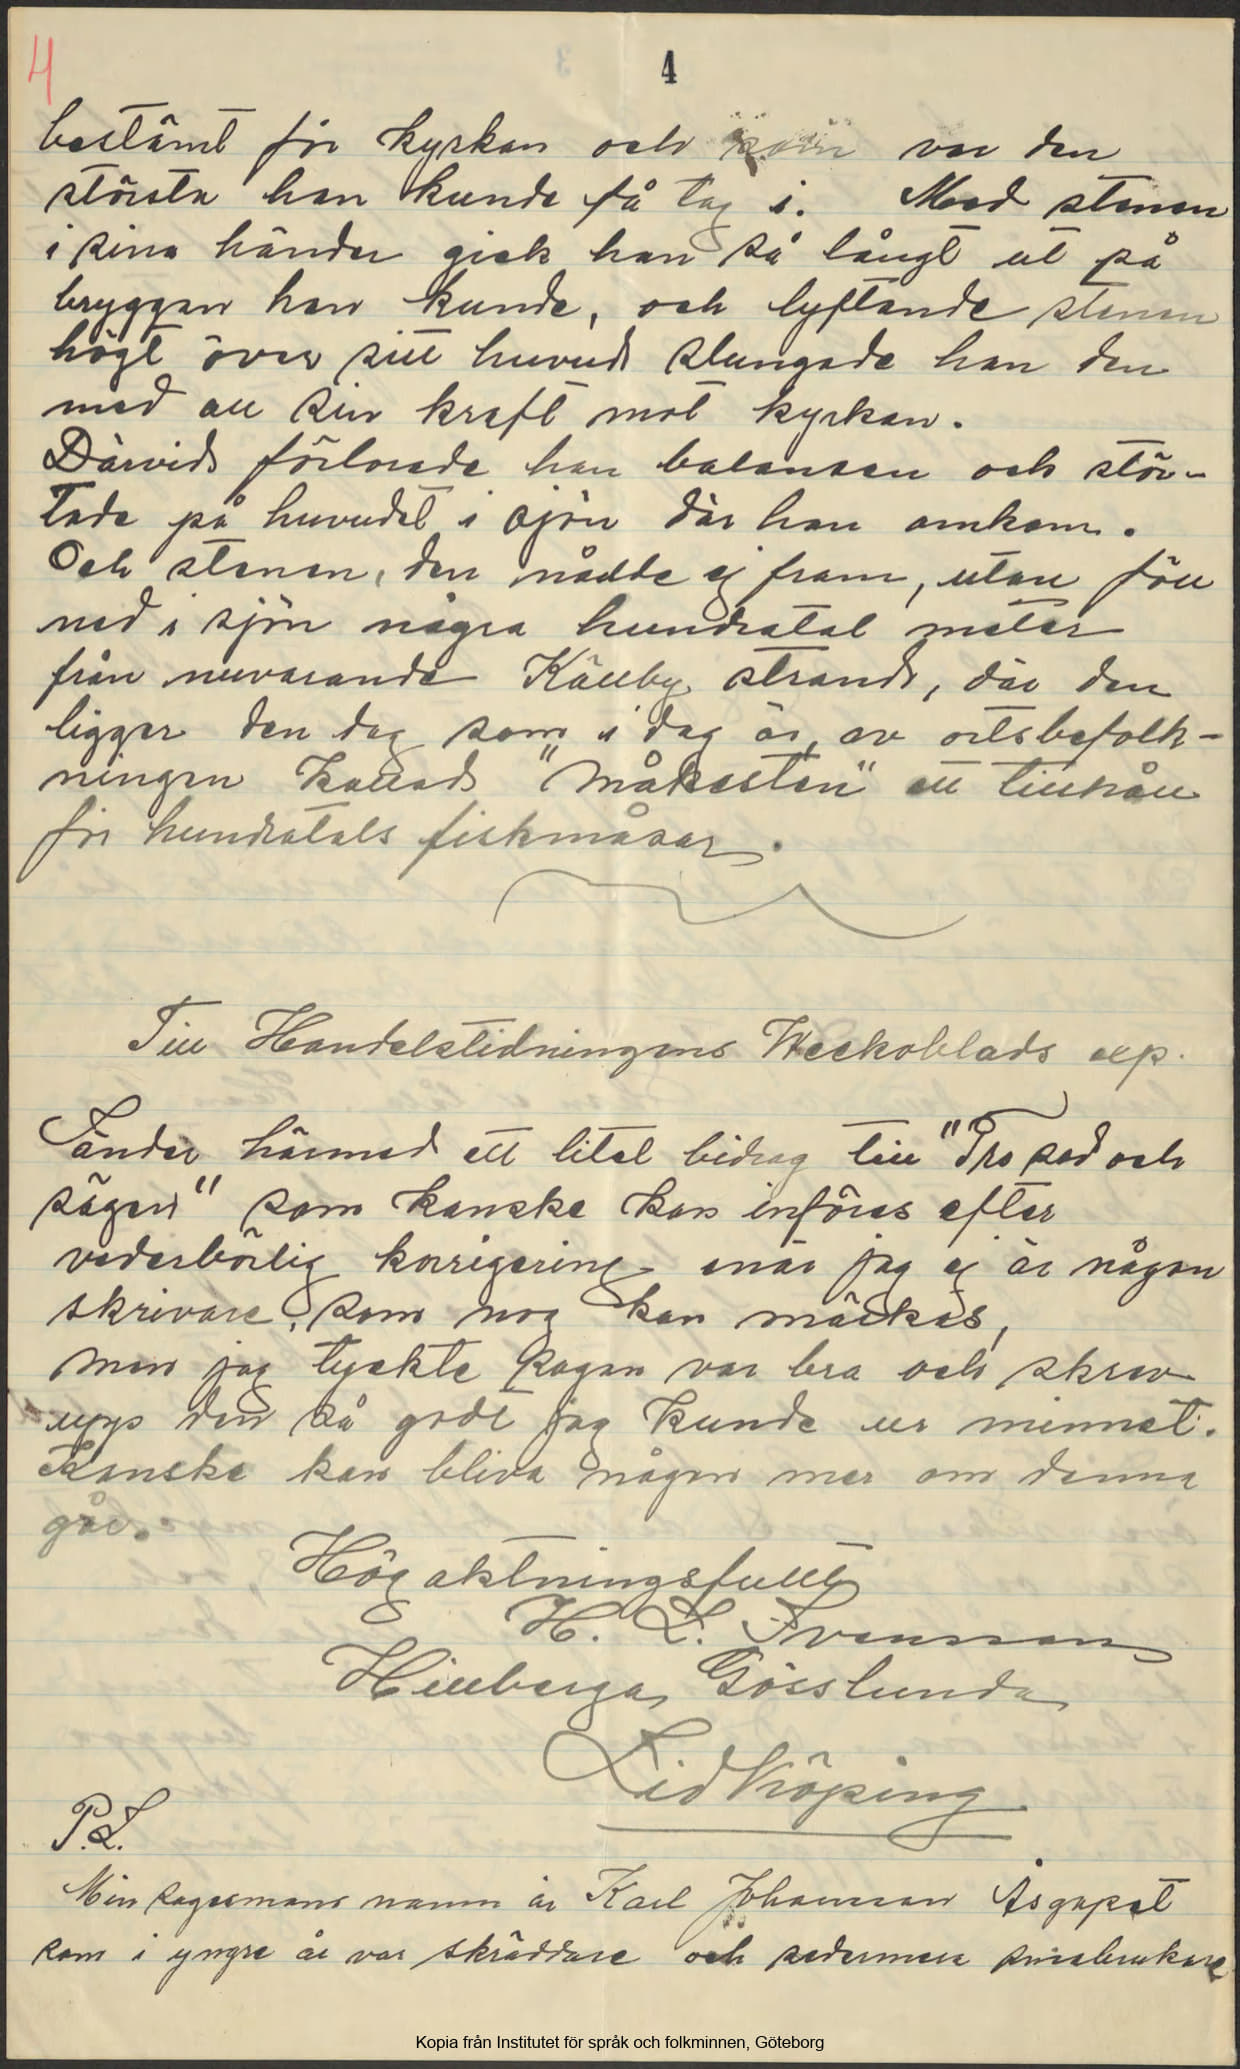 4
4
bestämt för kyrkan och som var den
största han kunde få tag i. Med stenen
i sina händer gick han så långt ut på
bryggan han kunde, och lyftande stenen
högt över sitt huvud slungade han den
med all sin kraft mot kyrkan.
Därvid förlorade han balansen och stör-
tade på huvudet i sjön där han omkom.
Och stenen, den nådde ej fram, utan föll
ned i sjön några hundratal meter
från nuvarande Källby strand, där den
ligger den dag som i dag är, av ortsbefolk-
ningen kallad "Måkasten" ett tillhåll
för hundratals fiskmåsar.
Till Handelstidningens Weckoblads exp.
Sänder härmed ett litet bidrag till "Tro sed och
sägen" som kanske kan införas efter
vederbörlig korrigering enär jag ej är någon
skrivare, som nog kan märkas,
men jag tyckte sagan var bra och skrev
upp den så godt jag kunde ur minnet.
Kanske kan bliva någon mer om denna
går.
Högaktningsfullt
H. L. Svensson
Hillberga, Gösslunda
Lidköping
P.S.
Min sagesmans namn är Karl Johansson Åsgapet
som i yngre år var skräddare och sedermera småbrukare
Kopia från Institutet för språk och folkminnen, Göteborg